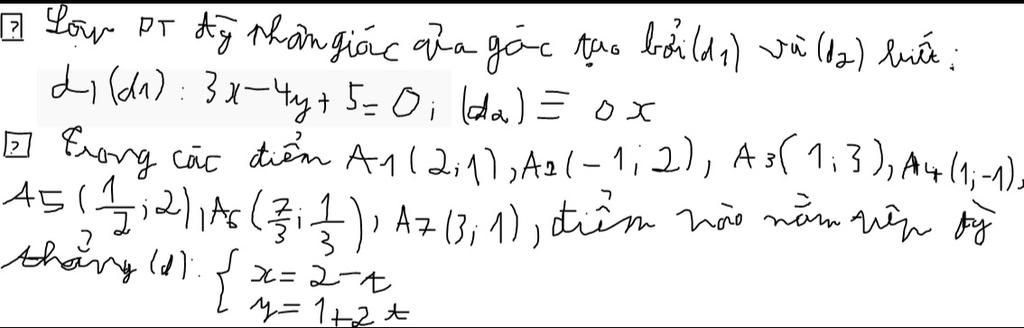 ? Lập PT đg phân giác của góc tạo bởi (d1) và (d2) biết:
d, (d1): 3x-4y+5=0; (d2) ≡ ox
? Trong các điểm A1(2;1), A2(-1;2), A3(1;3), A4(1;-1),
A5(1/2;2), A6(7/3;1/3), A7(3;1), điểm nào nằm trên đg
thẳng (d): { x=2-t
y=1+2t